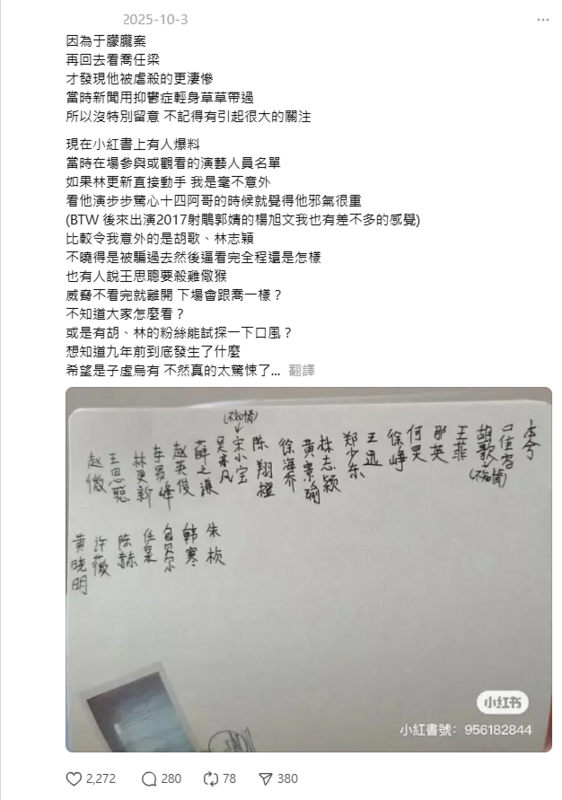 2025-10-3
因為于朦朧案
再回去看喬任梁
才發現他被虐殺的更淒慘
當時新聞用抑鬱症輕身草草帶過
所以沒特別留意 不記得有引起很大的關注
現在小紅書上有人爆料
當時在場參與或觀看的演藝人員名單
如果林更新直接動手 我是毫不意外
看他演步步驚心十四阿哥的時候就覺得他邪氣很重
(BTW 後來出演2017射鵰郭婧的楊旭文我也有差不多的感覺)
比較令我意外的是胡歌、林志穎
不曉得是被騙過去然後逼看完全程還是怎樣
也有人說王思聰要殺雞儆猴
威脅不看完就離開 下場會跟喬一樣？
不知道大家怎麼看？
或是有胡、林的粉絲能試探一下口風？
想知道九年前到底發生了什麼
希望是子虛烏有 不然真的太驚悚了... 翻譯
本兮
胡歌(不知情)
王菲
那英
何炅
徐峥
王迅
郑少东
林志颖
徐海乔
陈翔
(不知情)
宋小宝
吴亦凡
薛之谦
赵英俊
李易峰
林更新
王思聪
赵薇
朱桢
韩寒
任泉
陈赫
许薇
黄晓明
小红书
小紅書號：956182844
2,272
280
78
380